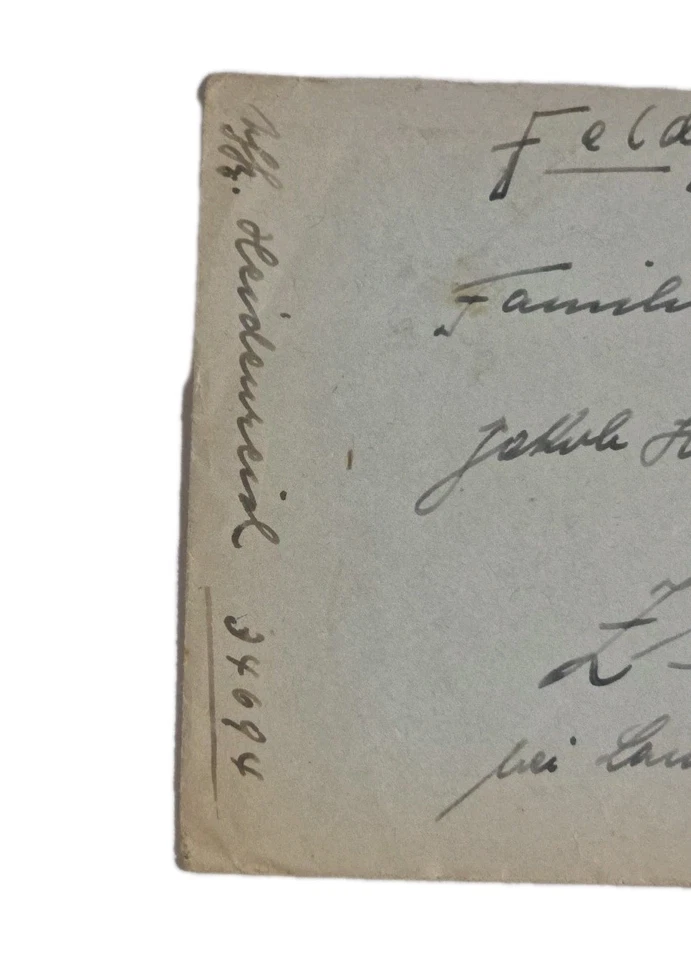 Uffz. Heidenreich 34694
Feld
Famili
Jakob H
bei Lan